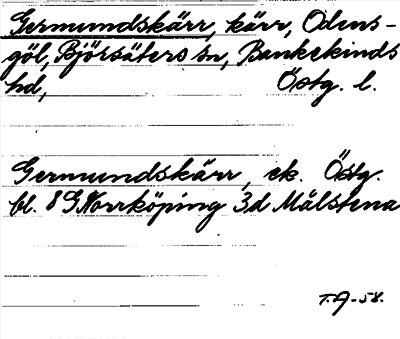 Germundskärr, kärr, Odens-
göl, Björsäters sn, Bankekinds
hd, Östg. l.
Germundskärr, ek. Östg.
bl. 8 G Norrköping 3d Mälstena
T.A-58.